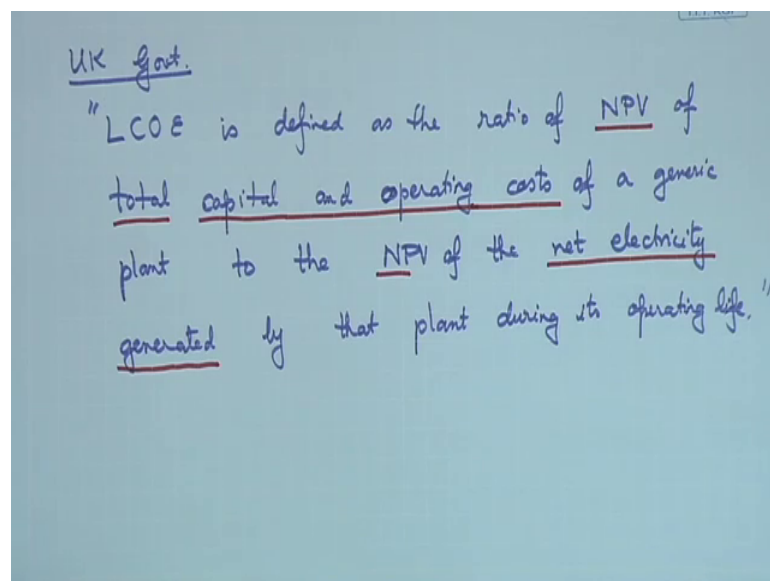 UK Govt.
"LCOE is defined as the ratio of NPV of
total capital and operating costs of a generic
plant to the NPV of the net electricity
generated by that plant during its operating life."